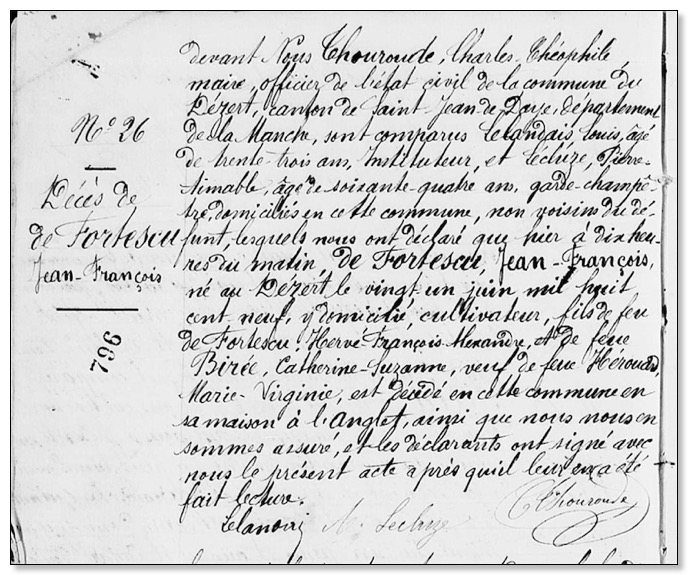 N° 26
Décès de
de Fortescu
Jean-François
796
devant Nous Thouroude, Charles-Théophile
maire, officier de l'état civil de la commune du
Dézert, canton de Saint-Jean-de-Daye, département
de la Manche, sont comparus Lelandais, Louis, âgé
de trente-trois ans, Instituteur, et Lécluze, Pierre-
Aimable, âgé de soixante-quatre ans, garde-champê-
tre, domiciliés en cette commune, non voisins du dé-
funt, lesquels nous ont déclaré que hier à dix heu-
res du matin de Fortescu, Jean-François,
né au Dézert, le vingt un juin mil huit
cent neuf, y domicilié, cultivateur, fils de feu
de Fortescu, Hervé-François-Alexandre, et de feue
Birée, Catherine-Suzanne, veuf de feue Hérouard,
Marie-Virginie, est décédé en cette commune en
sa maison à l'Anglet, ainsi que nous nous en
sommes assuré, et les déclarants ont signé avec
nous le présent acte après qu'il leur en a été
fait lecture.
Lecluze Thouroude